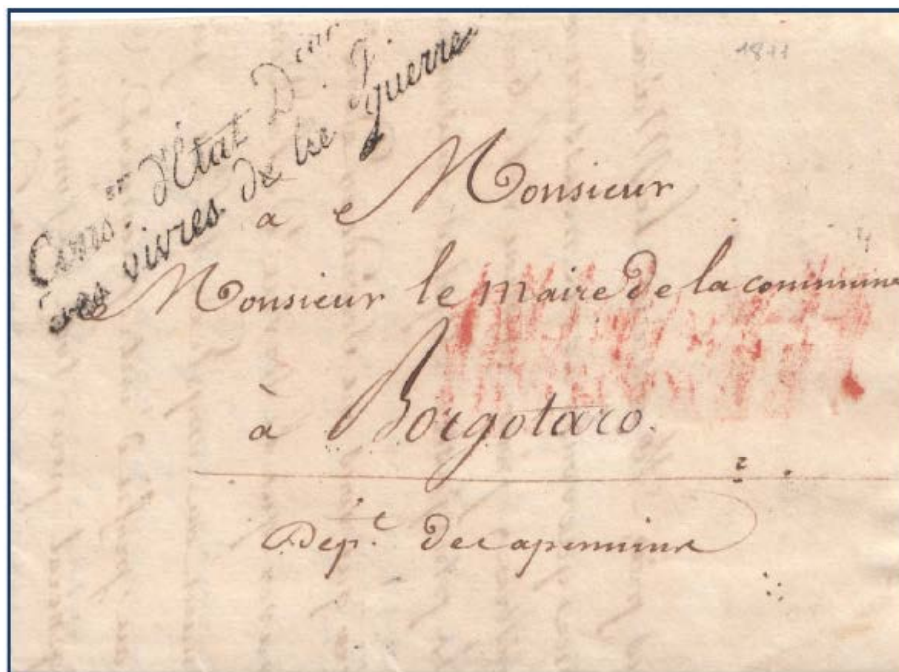 Cons.er d'Etat D.eur
des vivres de la guerre
1811
à Monsieur
Monsieur le maire de la commune
à Borgotaro.
Dép.t des apennins